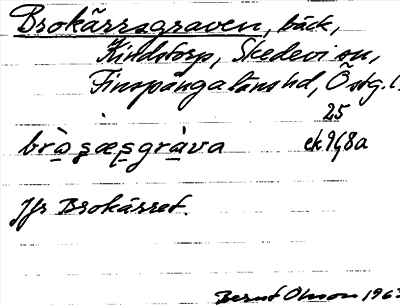 Brokärrsgraven, bäck,
Kindstorp, Skedevi sn,
Finspångaläns hd, Östg. l.
25
bròʂæʂgràva ek 9G8a
Jfr Brokärret.
Bernt Olsson 196